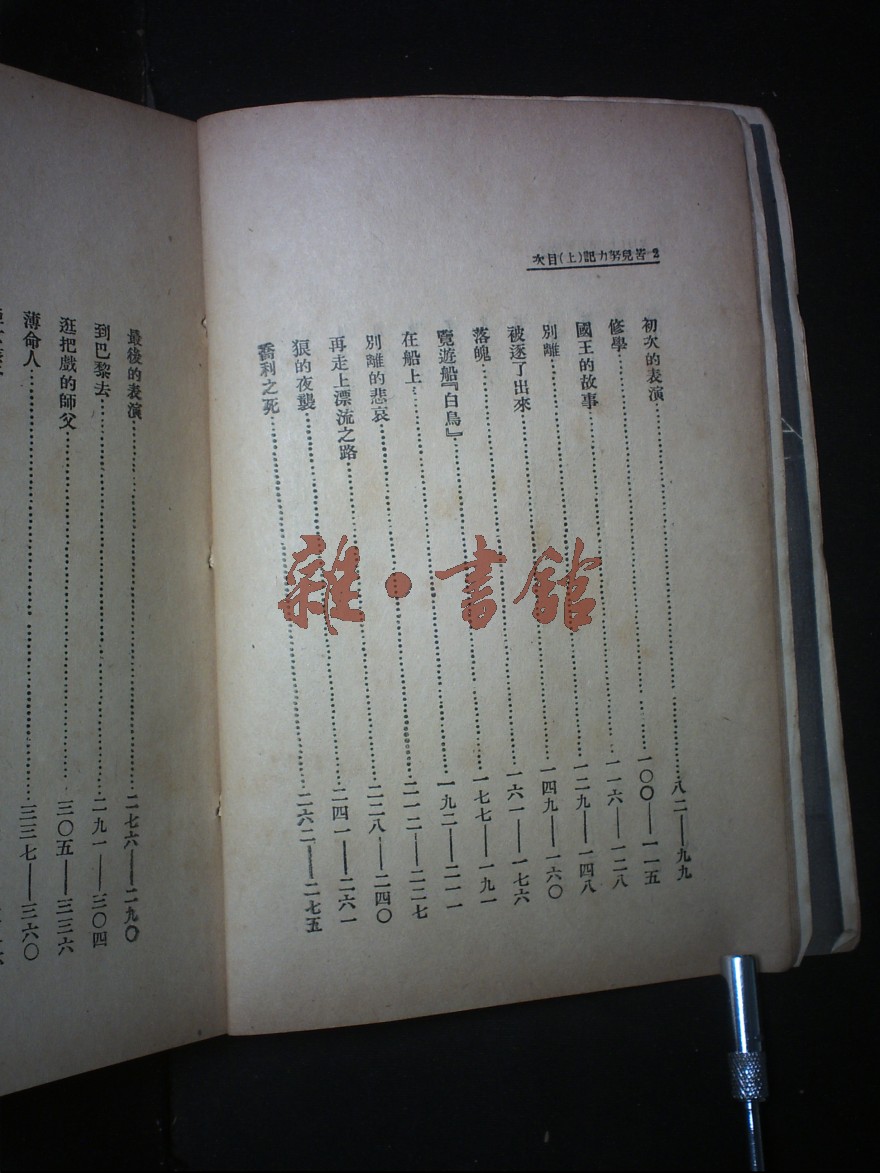 2 苦兒努力記(上)目次
初次的表演……八二——九九
修學……一〇〇——一一五
國王的故事……一一六——一二八
別離……一二九——一四八
被逐了出來……一四九——一六〇
落魄……一六一——一七六
覽遊船『白鳥』……一七七——一九一
在船上……一九二——二一一
別離的悲哀……二一二——二二七
再走上漂流之路……二二八——二四〇
狼的夜襲……二四一——二六一
喬利之死……二六二——二七五
最後的表演……二七六——二九〇
到巴黎去……二九一——三〇四
逛把戲的師父……三〇五——三三六
薄命人……三三七——三六〇
雜·書館